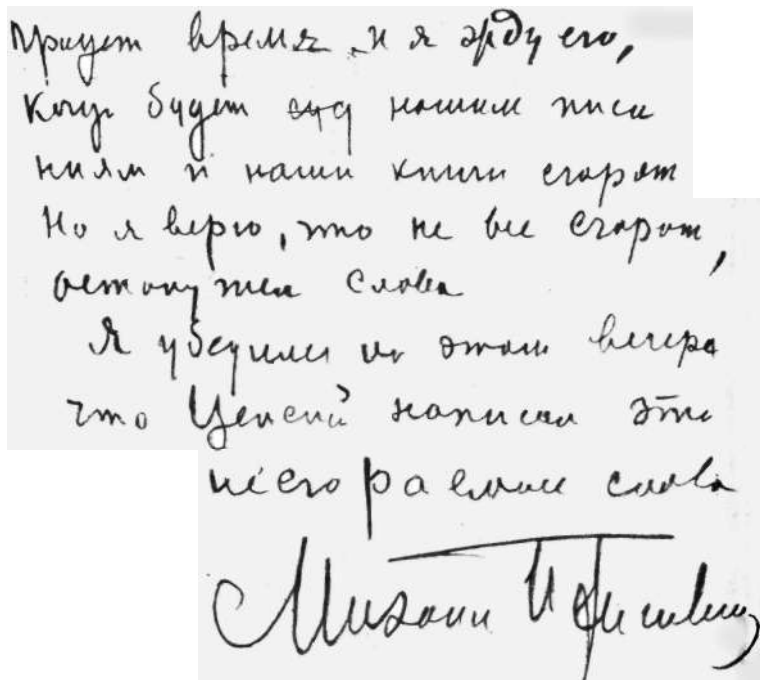 Придет время и я жду его,
Когда будет суд нашим писа
ниям и наши книги сгорят
Но я верю, что не все сгорят,
останутся слова
Я убедился на этом вечере
что Ценский написал эти
несгораемые слова
Михаил Пришвин